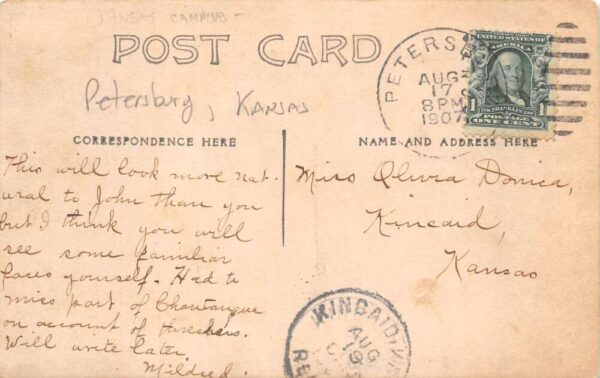 KANSAS CAMPING -
POST CARD
Petersburg, Kansas
PETERSB
AUG
17
8 PM
1907
UNITED STATES OF
AMERICA
FRANKLIN
1 1
POSTAGE
ONE CENT
CORRESPONDENCE HERE
This will look more nat-
ural to John than you
but I think you will
see some familiar
faces yourself. Had to
miss part of Chautauqua
on account of threshers.
Will write later.
Mildred.
NAME AND ADDRESS HERE
Miss Olivia Donica,
Kincaid,
Kansas
KINCAID, KA
AUG
19
RE